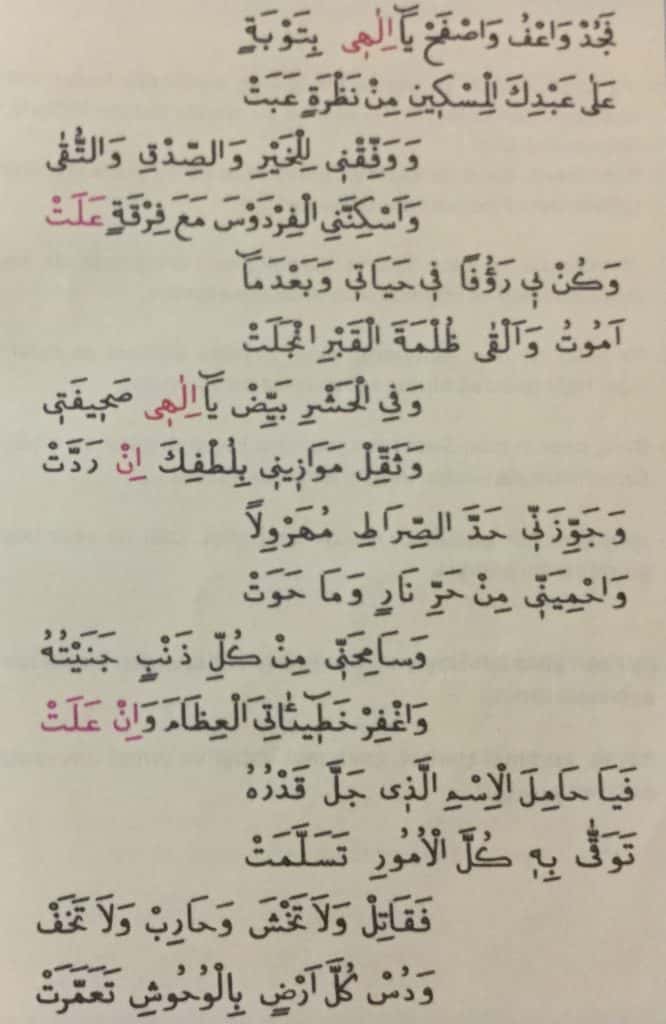 فَجُدْ وَاعْفُ وَاصْفَحْ يَآ اِلٰهٖى بِتَوْبَةٍ
عَلٰى عَبْدِكَ الْمِسْكٖينِ مِنْ نَظْرَةٍ عَبَتْ
وَوَفِّقْنٖى لِلْخَيْرِ وَالصِّدْقِ وَالتُّقٰى
وَاَسْكِنَنَّىِ الْفِرْدَوْسَ مَعَ فِرْقَةٍ عَلَتْ
وَكُنْ لٖى رَؤُفًا فٖى حَيَاتٖى وَبَعْدَمَآ
اَمُوتُ وَاَلْقٰى ظُلْمَةَ الْقَبْرِ انْجَلَتْ
وَفِى الْحَشْرِ بَيِّضْ يَآ اِلٰهٖى صَحٖيفَتٖى
وَثَقِّلْ مَوَازٖينٖى بِلُطْفِكَ اِنْ رَدَّتْ
وَجَوِّزَنّٖى حَدَّ الصِّرَاطِ مُهَرْوِلاً
وَاحْمِيَنّٖى مِنْ حَرِّ نَارٍ وَمَا حَوَتْ
وَسَامِحَنّٖى مِنْ كُلِّ ذَنْبٍ جَنَيْتُهُ
وَاغْفِرْ خَطٖٓيئَاتِىَ الْعِظَامَ وَاِنْ عَلَتْ
فَيَا حَامِلَ الْاِسْمِ الَّذٖى جَلَّ قَدْرُهُ
تَوَقّٰى بِهٖ كُلَّ الْاُمُورِ تَسَلَّمَتْ
فَقَاتِلْ وَلاَ تَخْشَ وَحَارِبْ وَلاَ تَخَفْ
وَدُسْ كُلَّ اَرْضٍ بِالْوُحُوشِ تَعَمَّرَتْ